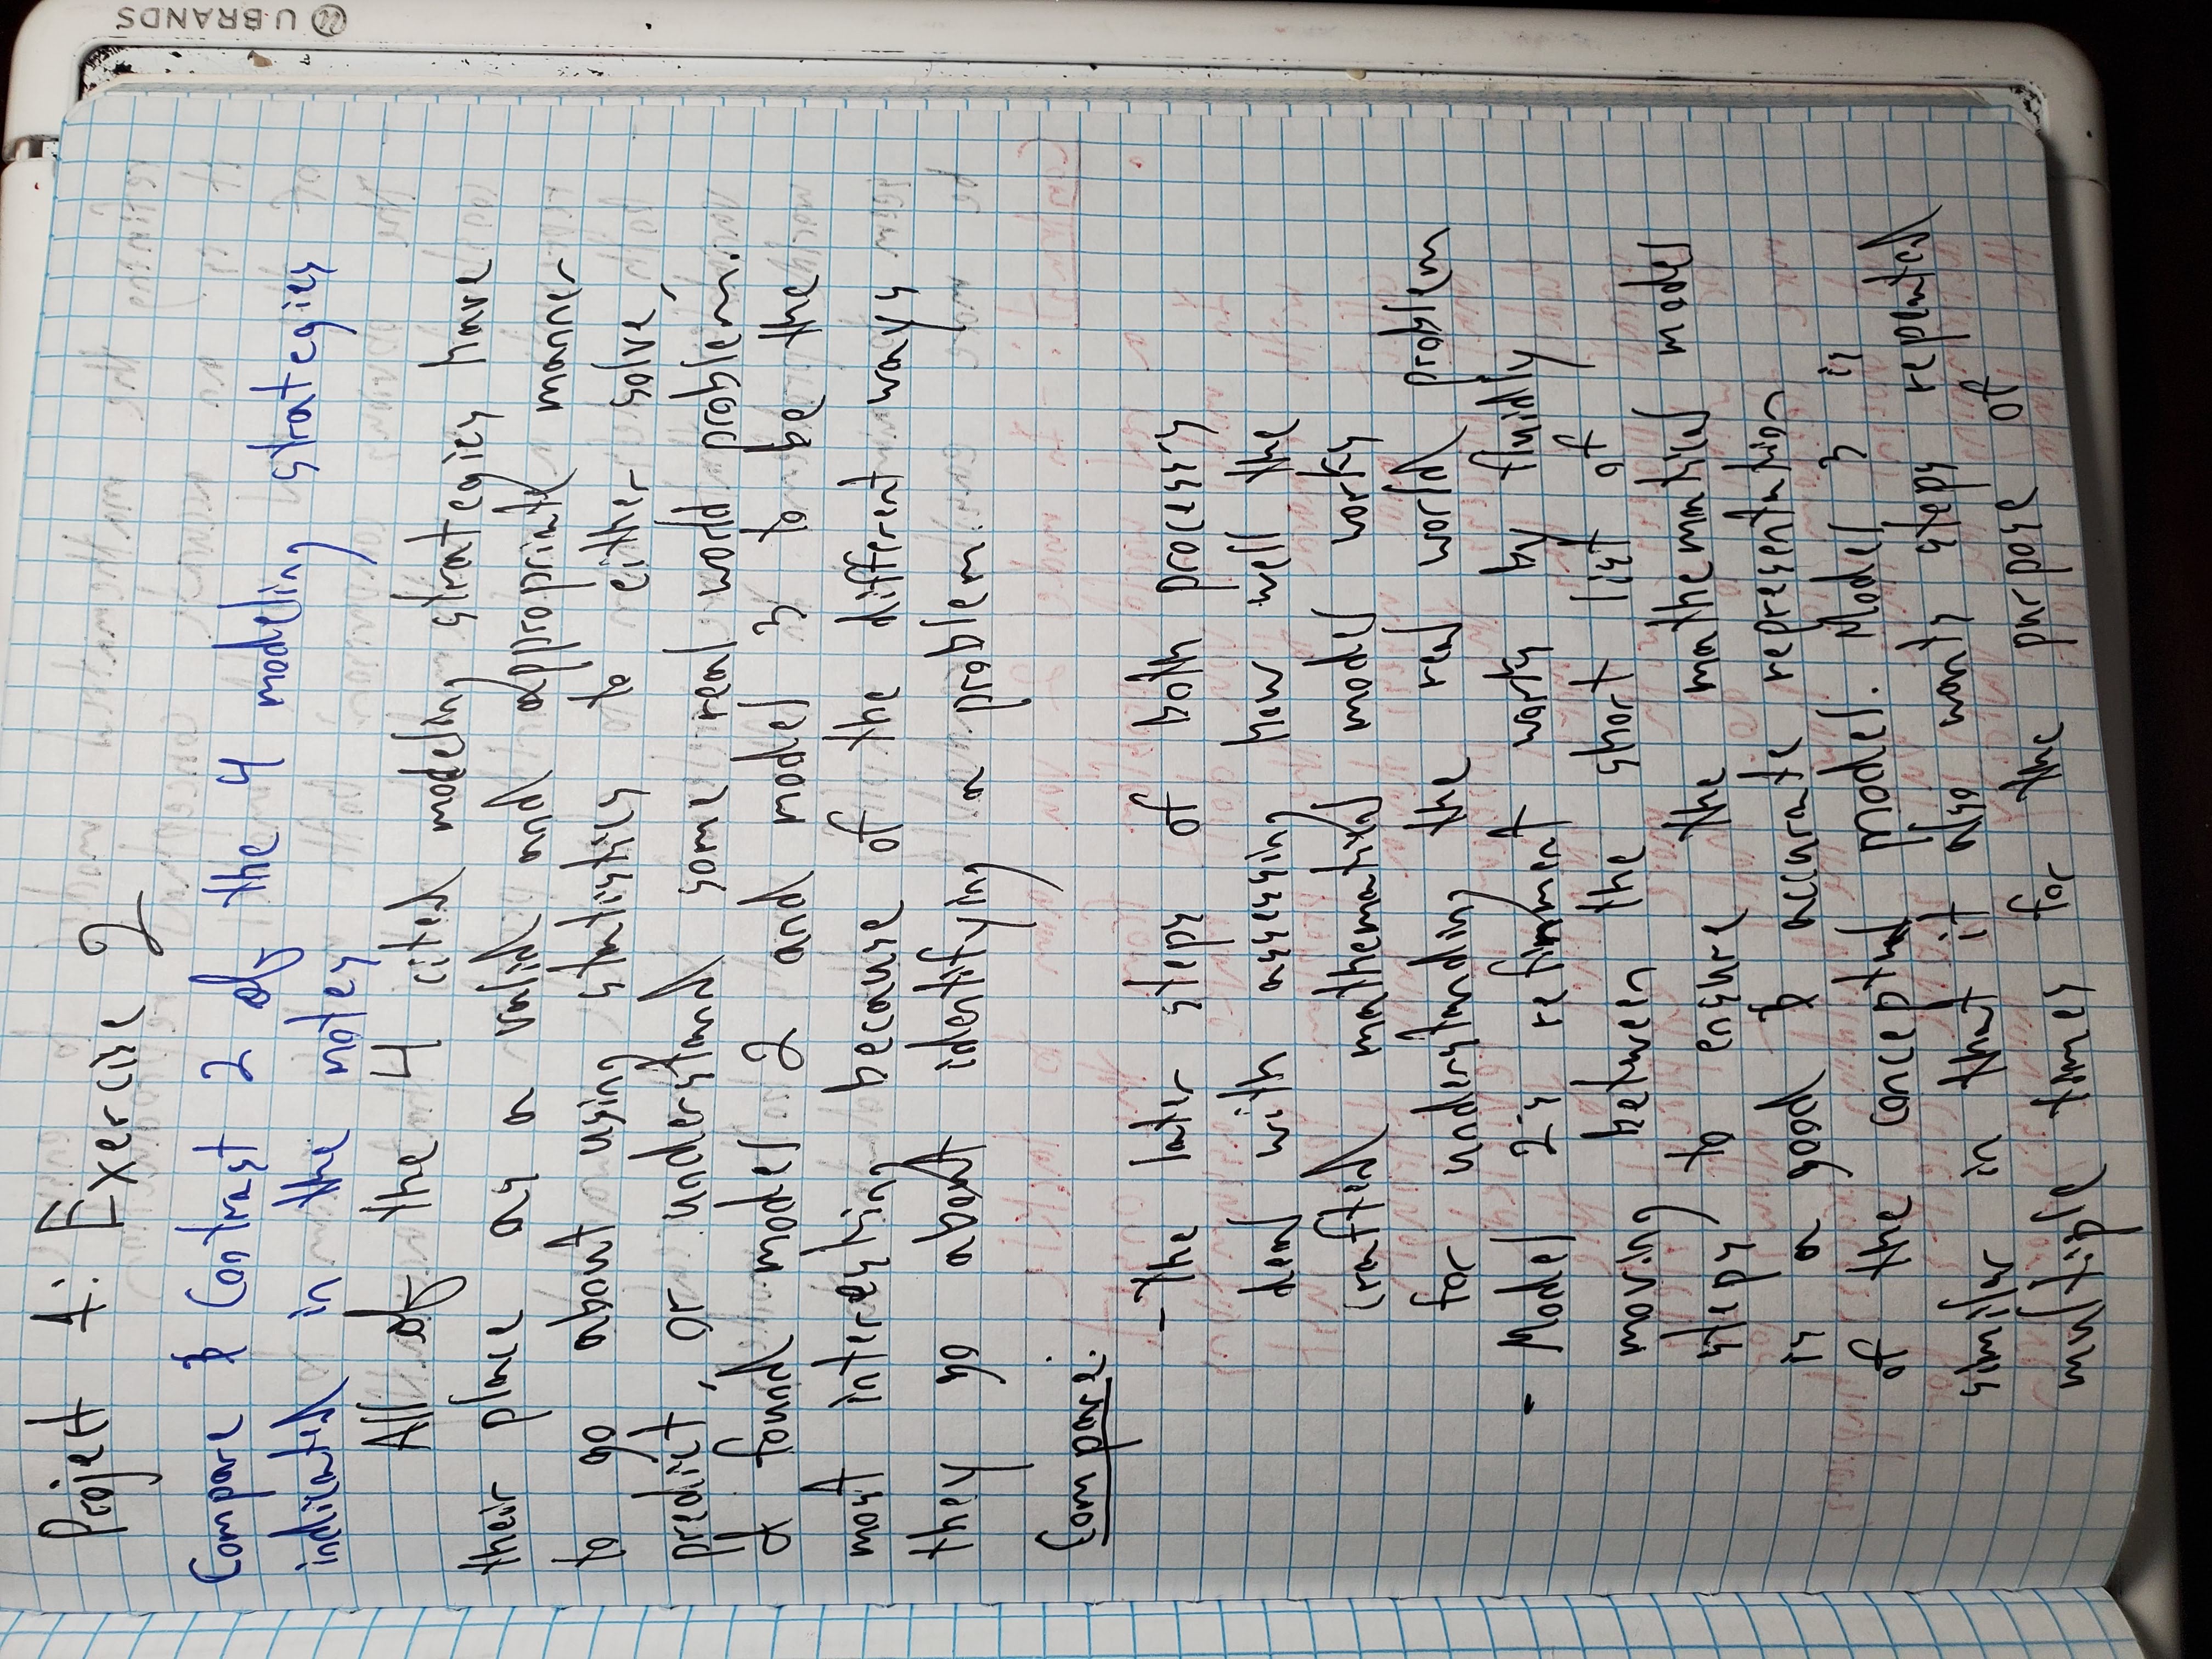 Project 1: Exercise 2
Compare & Contrast 2 of the 4 modeling strategies
indicated in the notes
All of the 4 cited modeling strategies have
their place as a valid and appropriate manner
to go about using statistics to either solve,
predict, or understand some real world problem.
I found model 2 and model 3 to be the
most interesting because of the different ways
they go about identifying a problem.
Compare:
- The later steps of both processes
deal with assessing how well the
crafted mathematical model works
for understanding the real world problem
- Model 2's refinment works by fluidly
moving between the short list of
steps to ensure the mathematical model
is a good & accurate representation
of the conceptual model. Model 3 is
similar in that it also wants steps repeated
multiple times for the purpose of
U BRANDS